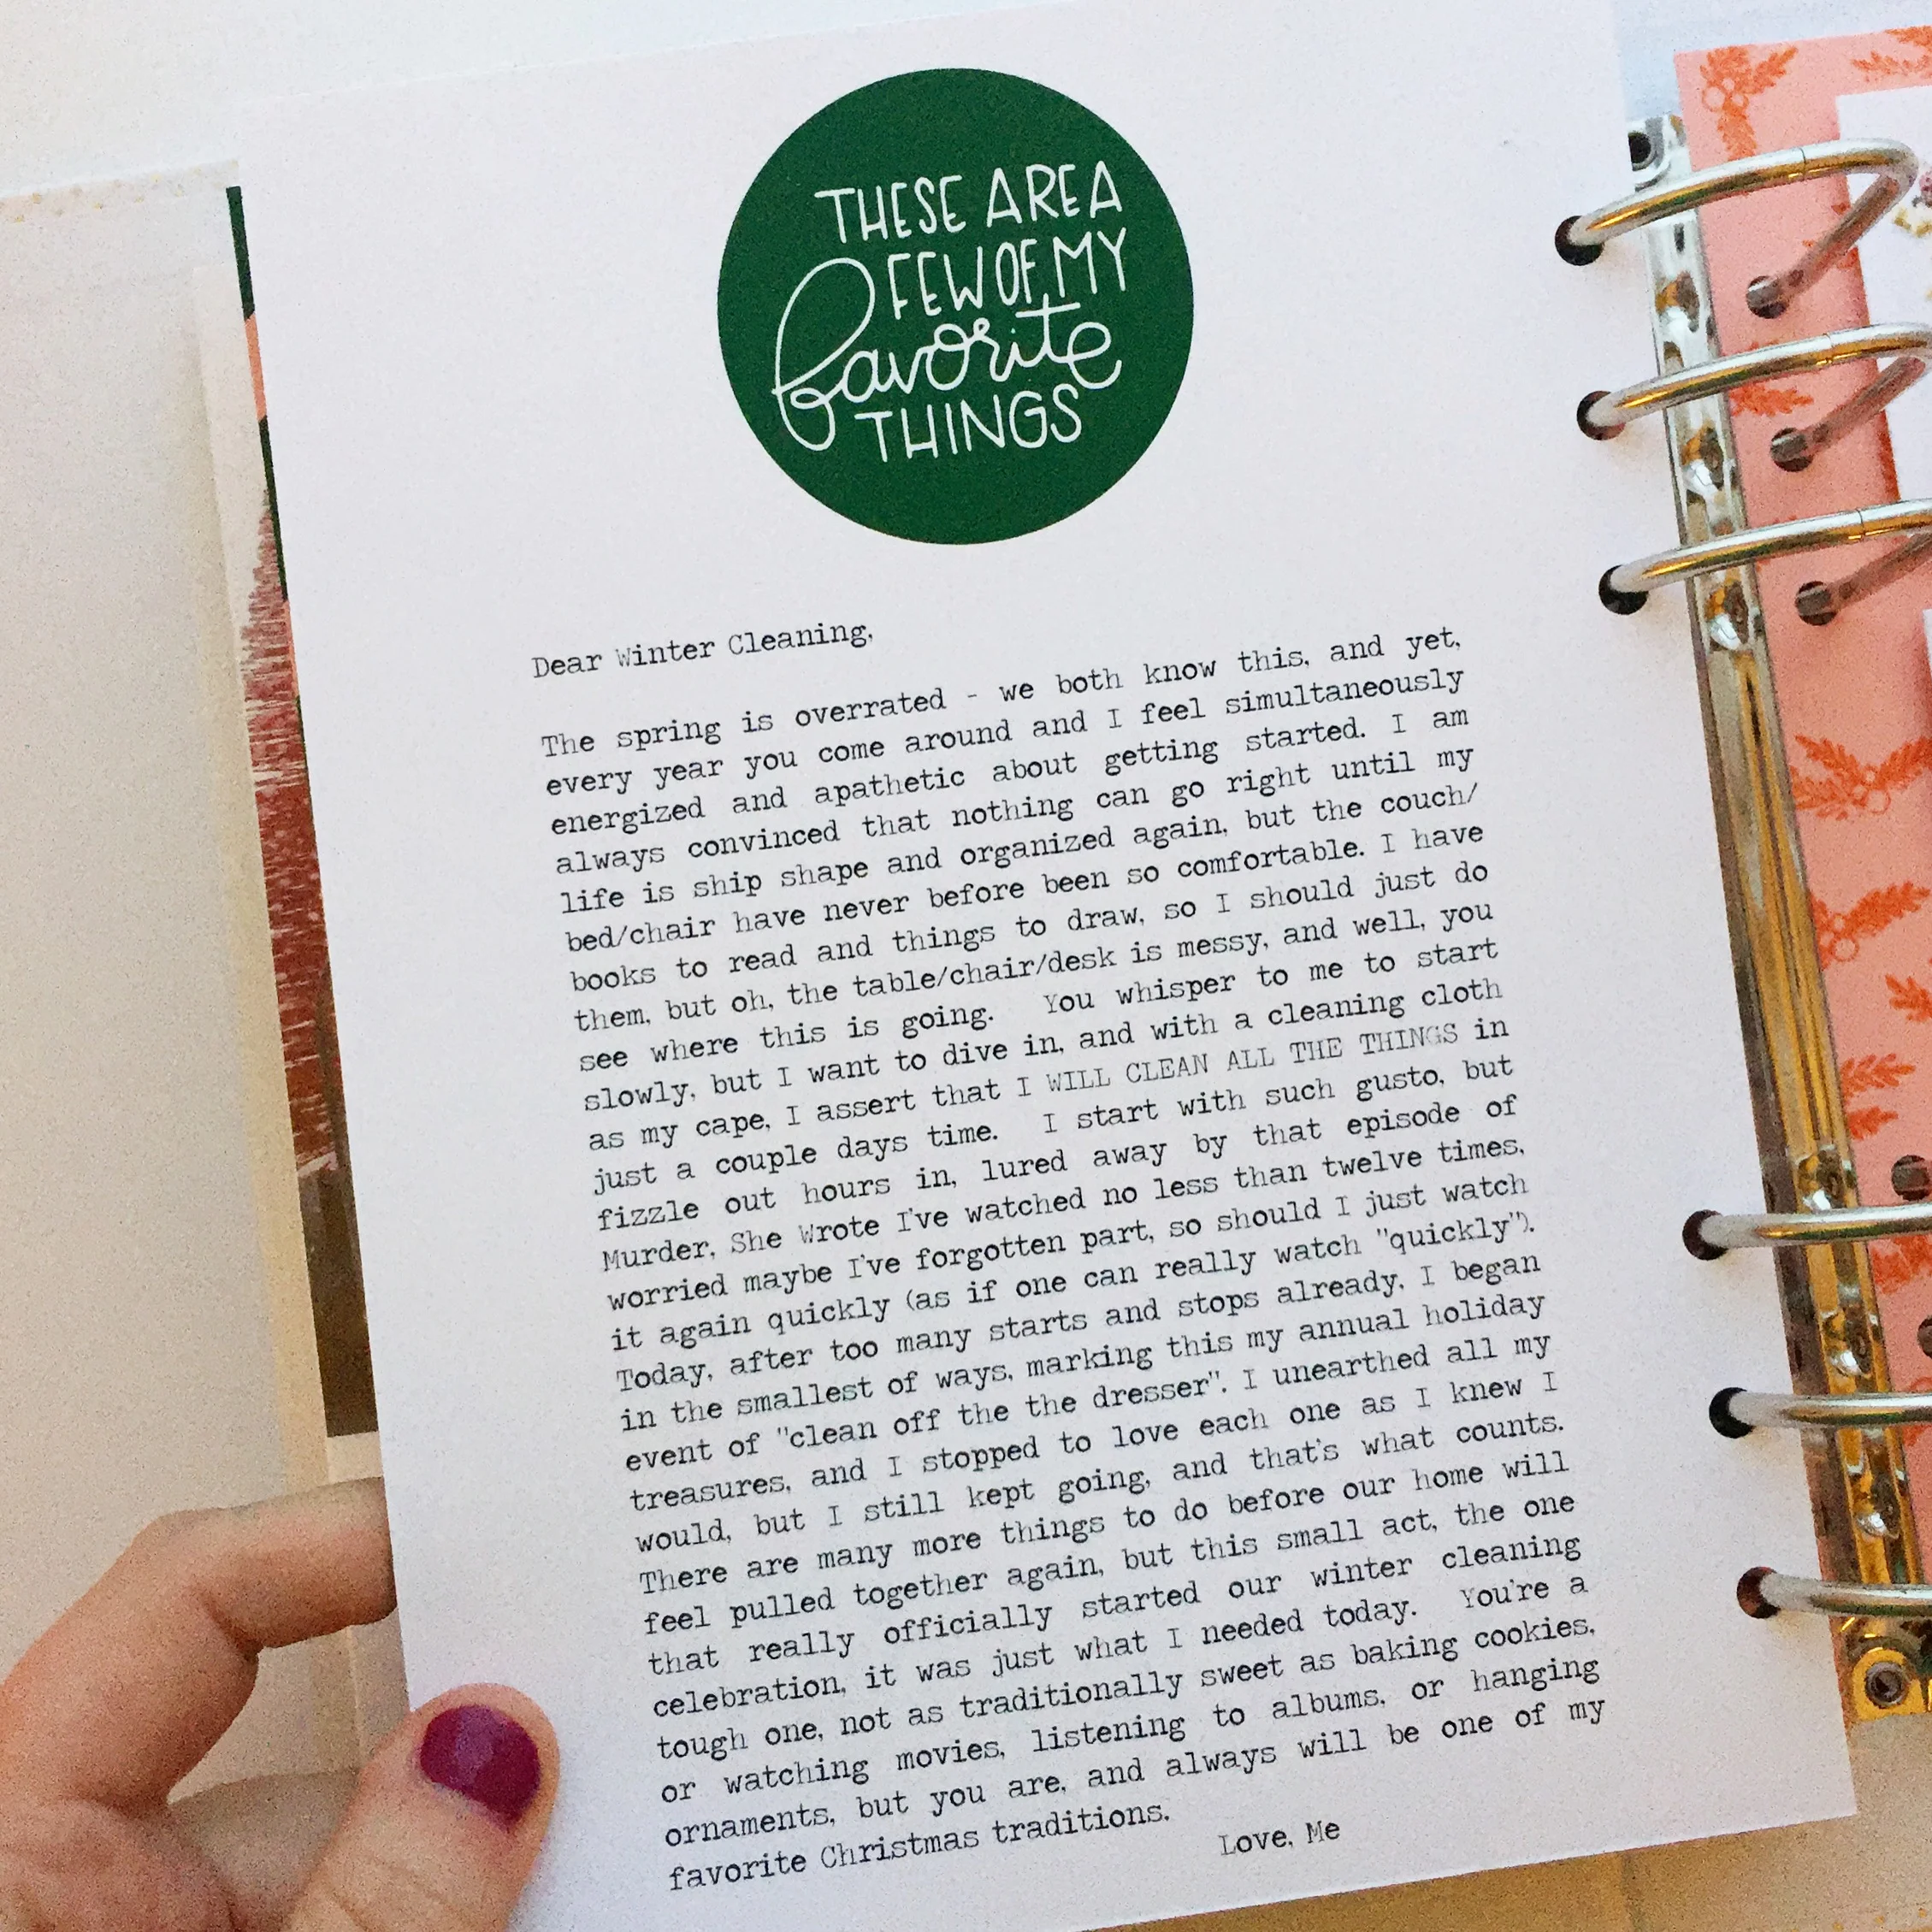 THESE ARE A
FEW OF MY
favorite
THINGS
Dear Winter Cleaning,
The spring is overrated - we both know this, and yet,
every year you come around and I feel simultaneously
energized and apathetic about getting started. I am
always convinced that nothing can go right until my
life is ship shape and organized again, but the couch/
bed/chair have never before been so comfortable. I have
books to read and things to draw, so I should just do
them, but oh, the table/chair/desk is messy, and well, you
see where this is going. You whisper to me to start
slowly, but I want to dive in, and with a cleaning cloth
as my cape, I assert that I WILL CLEAN ALL THE THINGS in
just a couple days time. I start with such gusto, but
fizzle out hours in, lured away by that episode of
Murder, She Wrote I've watched no less than twelve times,
worried maybe I've forgotten part, so should I just watch
it again quickly (as if one can really watch "quickly").
Today, after too many starts and stops already, I began
in the smallest of ways, marking this my annual holiday
event of "clean off the the dresser". I unearthed all my
treasures, and I stopped to love each one as I knew I
would, but I still kept going, and that's what counts.
There are many more things to do before our home will
feel pulled together again, but this small act, the one
that really officially started our winter cleaning
celebration, it was just what I needed today. You're a
tough one, not as traditionally sweet as baking cookies,
or watching movies, listening to albums, or hanging
ornaments, but you are, and always will be one of my
favorite Christmas traditions.
Love, Me